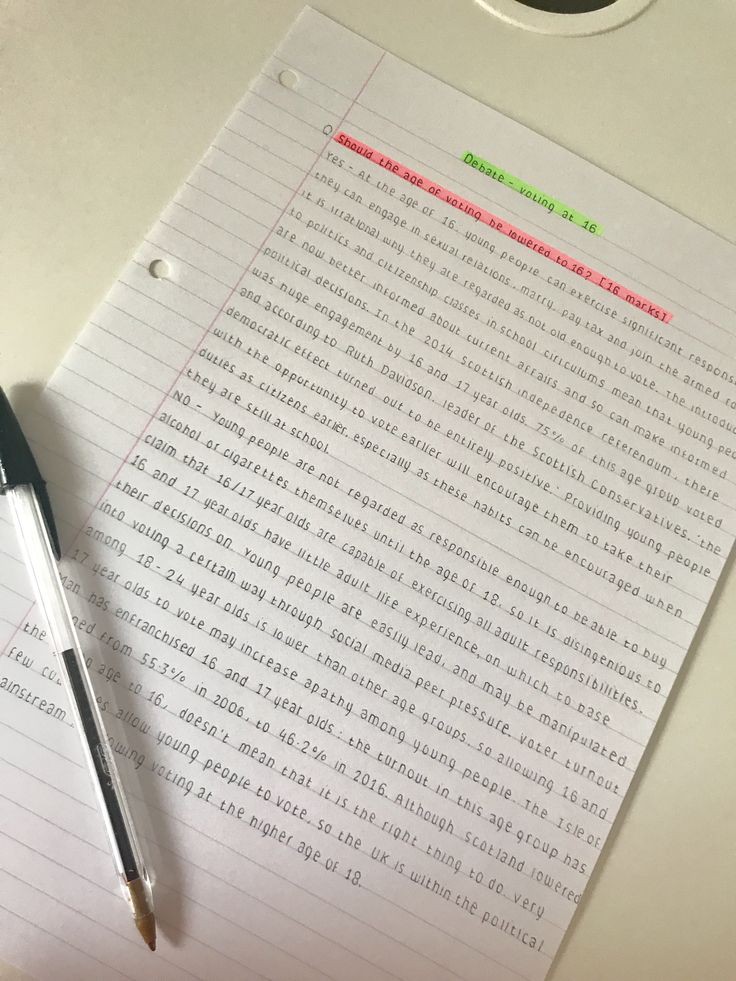 Debate - voting at 16
Q Should the age of voting be lowered to 16? [16 marks]
Yes - At the age of 16, young people can exercise significant respons
they can engage in sexual relations, marry, pay tax and join the armed fo
it is irrational why they are regarded as not old enough to vote. The introduc
to politics and citizenship classes in school ciriculums mean that young peo
are now better informed about current affairs and so can make informed
political decisions. In the 2014 Scottish independence referendum, there
was huge engagement by 16 and 17 year olds. 75% of this age group voted
and according to Ruth Davidson, leader of the Scottish Conservatives, 'the
democratic effect turned out to be entirely positive'. Providing young people
with the opportunity to vote earlier will encourage them to take their
duties as citizens earlier, especially as these habits can be encouraged when
they are still at school
NO - Young people are not regarded as responsible enough to be able to buy
alcohol or cigarettes themselves until the age of 18, so it is disingenious to
claim that 16/17 year olds are capable of exercising all adult responsibilities.
16 and 17 year olds have little adult life experience, on which to base
their decisions on. Young people are easily lead, and may be manipulated
into voting a certain way through social media peer pressure. Voter turnout
among 18-24 year olds is lower than other age groups, so allowing 16 and
17 year olds to vote may increase apathy among young people. The Isle of
Man has enfranchised 16 and 17 year olds; the turnout in this age group has
ned from 55.3% in 2006, to 46.2% in 2016. Although Scotland lowered
the age to 16, doesn't mean that it is the right thing to do. Very
few allow young people to vote, so the UK is within the political
ainstream owing voting at the higher age of 18.